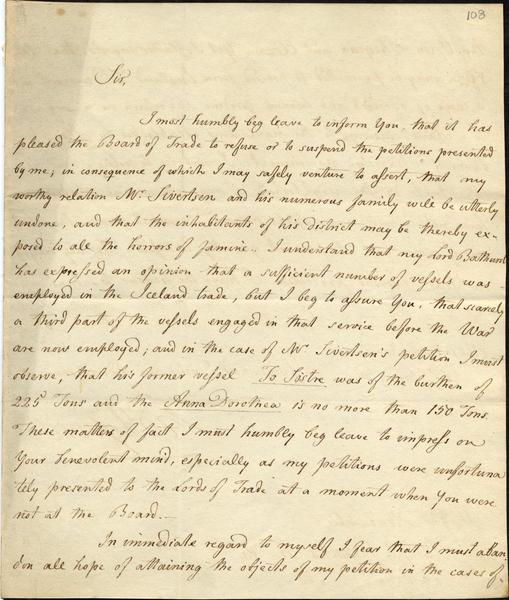 103
Sir,
I most humbly beg leave to inform You, that it has
pleased the Board of Trade to refuse or to suspend the petitions presented
by me; in consequence of which I may safely venture to assert, that my
worthy relation Mr. Sivertsen and his numerous family will be utterly
undone, and that the inhabitants of his district may be thereby ex-
posed to all the horrors of famine. I understand that my Lord Bathurst
has expressed an opinion that a sufficient number of vessels was
employed in the Iceland trade, but I beg to assure You, that scarcely
a third part of the vessels engaged in that service before the War
are now employed; and in the case of Mr. Sivertsen's petition I must
observe, that his former vessel To Söstre was of the burthen of
225 Tons and the Anna Dorothea is no more than 150 Tons.
These matters of fact I must humbly beg leave to impress on
Your benevolent mind, especially as my petitions were unfortuna
tely presented to the Lords of Trade at a moment when You were
not at the Board.—
In immediate regard to myself I fear that I must aban
don all hope of attaining the objects of my petition in the cases of